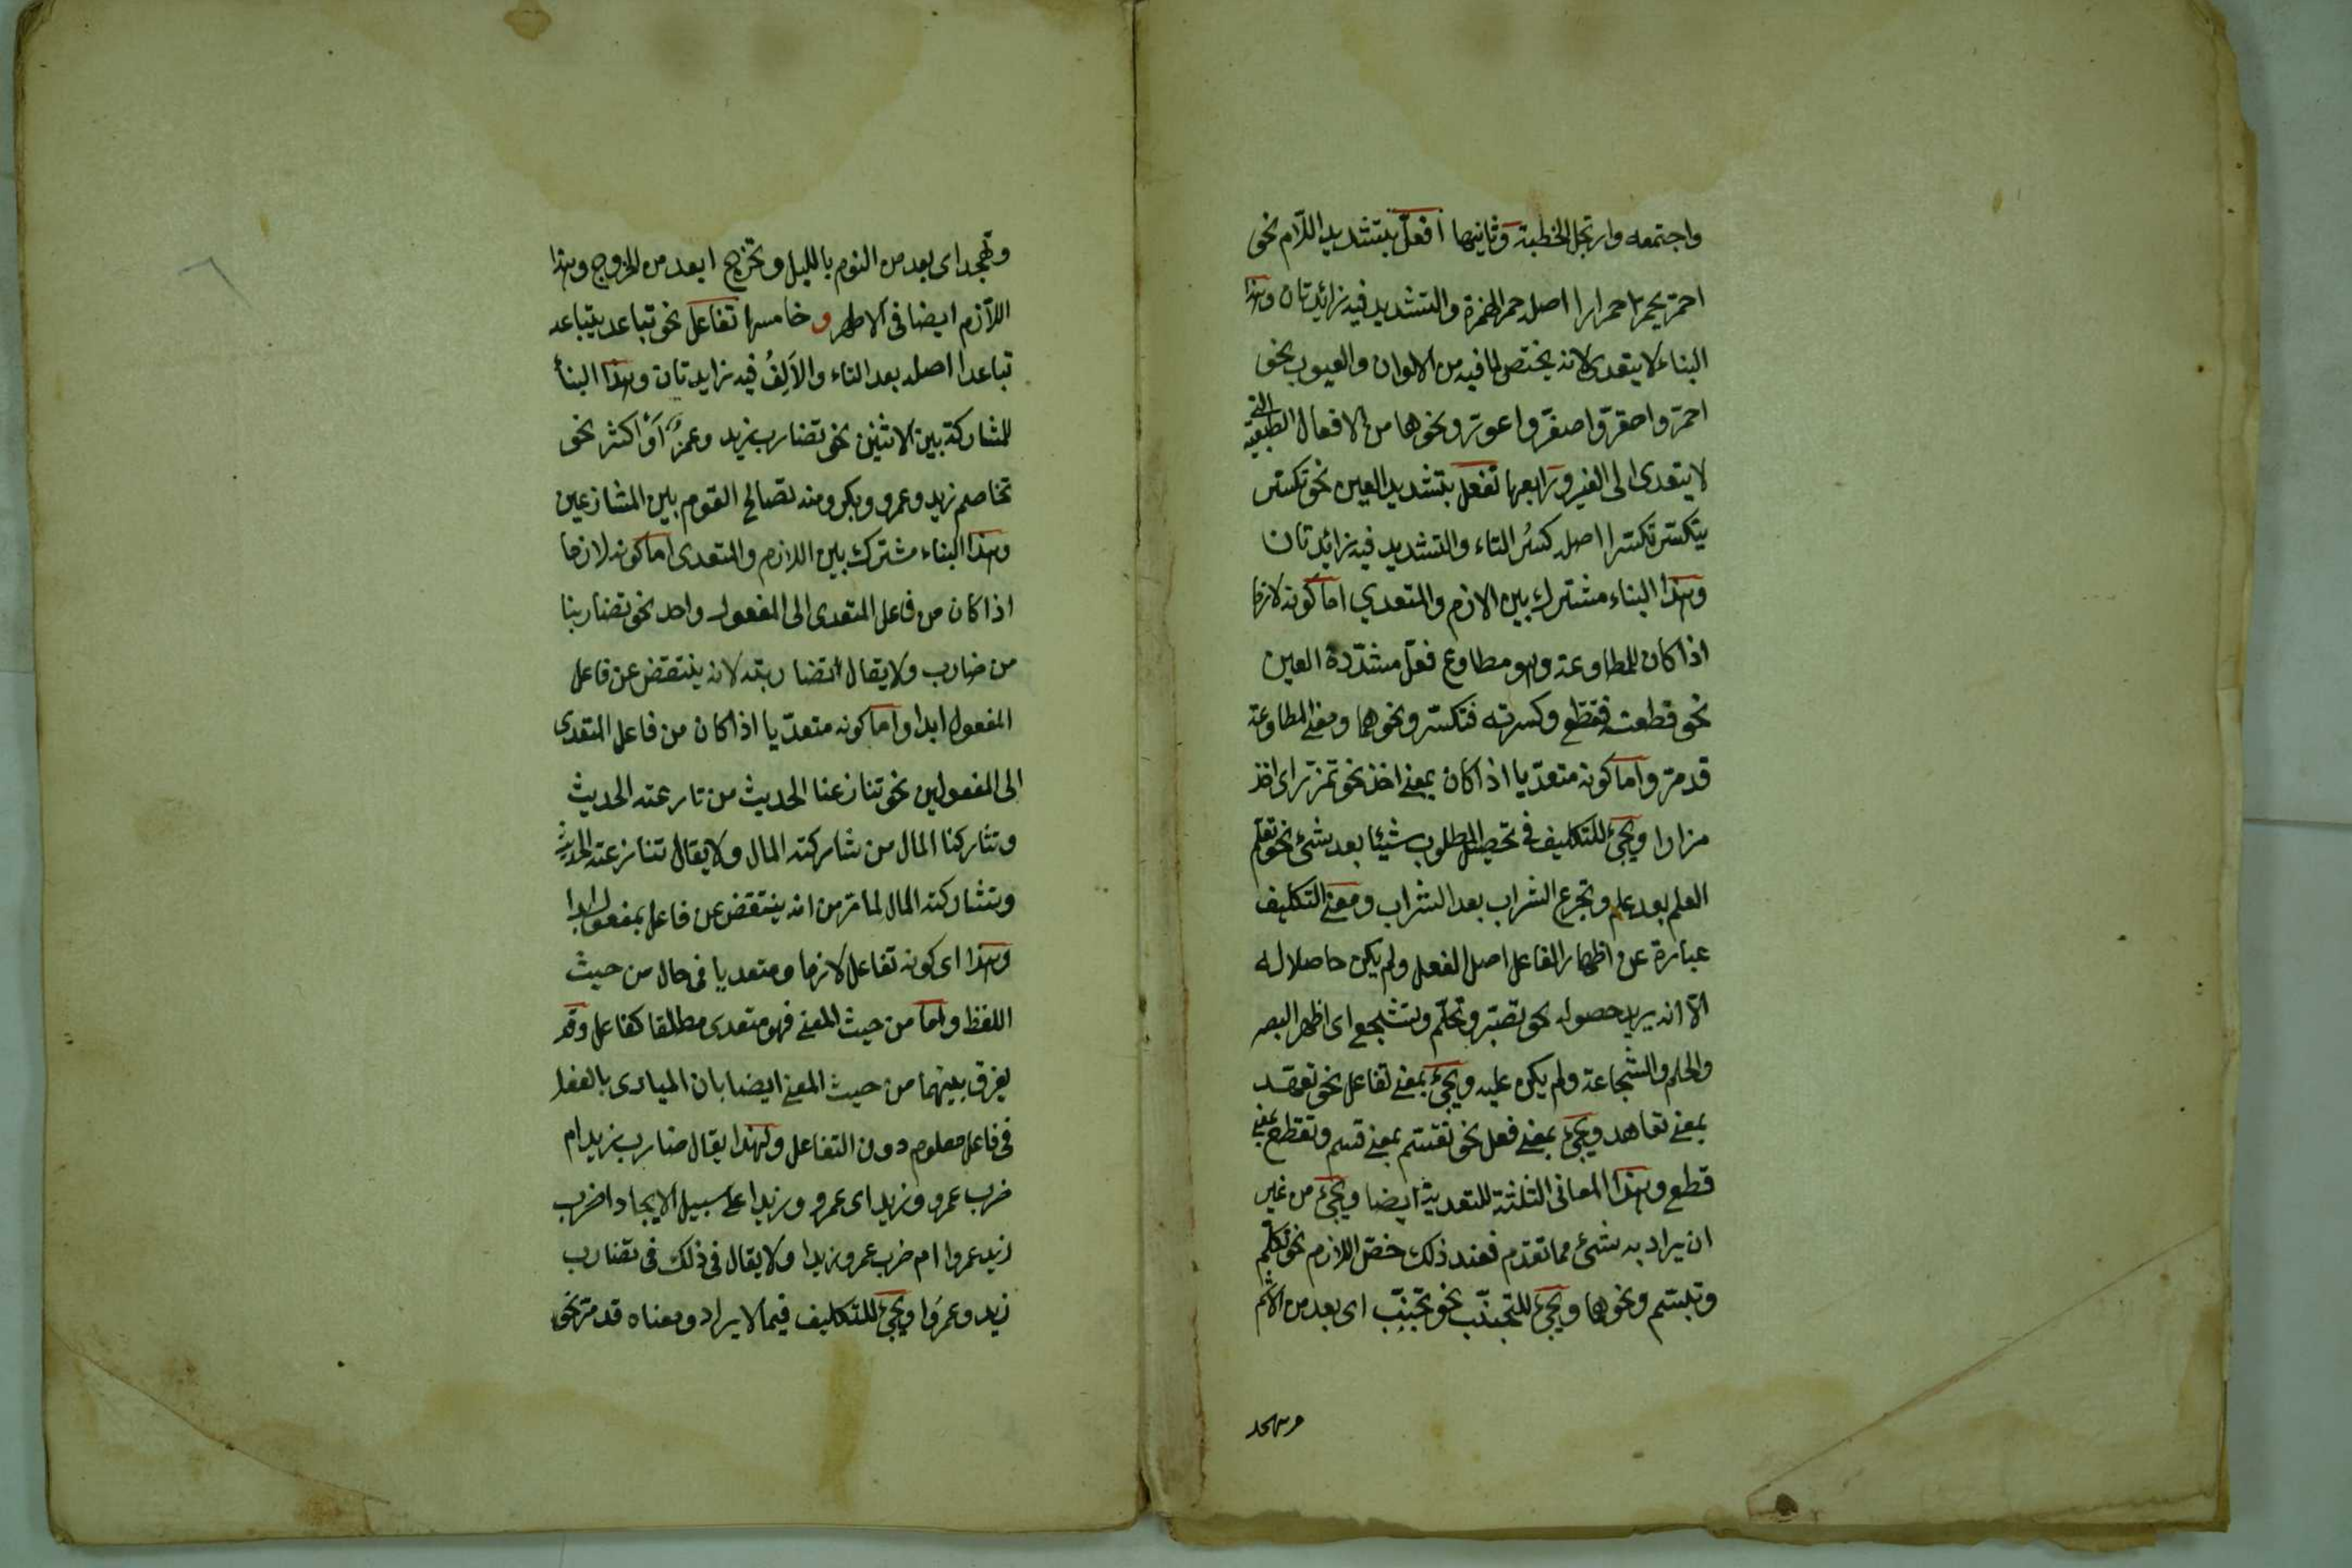 واجتمعه وارتجل الخطبة وثانيها افعلّ بتشديد اللّام نحو
احمرّ يحمرّ احمرارا اصله حمر الهمزة والتشديد فيه زائدتان وهذا
البناء لا يتعدى لانه يختص لما فيه من الالوان والعيوب نحو
احمرّ واصفرّ واعورّ ونحوها من الافعال الطبعية التى
لا يتعدى الى الغير ورابعها تفعل بتشديد العين نحو تكسّر
يتكسّر تكسّرا اصله كسُر التاء والتشديد فيه زائدتان
وهذا البناء مشترك بين الازم والمتعدي اما كونه لازما
اذا كان للمطاوعة وهو مطاوع فعّل مشدّدة العين
نحو قطعته فقطّع وكسرته فتكسّر ونحوهما ومعنى المطاوعة
قد مرّ واما كونه متعدّيا اذا كان بمعنى اخذ نحو تمزّر اى اخذ
مزارا ويجئ للتكليف فى تحصيل المطلوب شيئا بعد شئ نحو تعلّم
العلم بعد علم وتجرع الشراب بعد الشراب ومعنى التكليف
عبارة عن اظهار الفاعل اصل الفعل ولم يكن حاصلا له
الّا انه يريد حصوله نحو تصبّر وتحلّم وتشجع اى اظهر الصبر
والحلم والشجاعة ولم يكن عليه ويجئ بمعنى تفاعل نحو تعهّد
بمعنى تعاهد ويجئ بمعنى فعل نحو تقسّم بمعنى قسم وتقطع بمعنى
قطع وهذا المعانى الثلثة للتعدية ايضا ويجئ من غير
ان يراد به شئ مما تقدّم فعند ذلك خصّ اللازم نحو تكلّم
وتبسّم ونحوها ويجئ للتجنّب نحو تجنّب اى بعد من الاثم
وتهجد
وتهجد اى بعد من النوم بالليل وتخرّج ابعد من الخروج وهذا
اللّازم ايضا فى الاظهر و خامسها تفاعل نحو تباعد يتباعد
تباعدا اصله بعد التاء والاَلِفُ فيه زايدتان وهذا البنأ
للمشاركة بين الاثنين نحو تضارب زيد وعمرٌو اَوْ اكثر نحو
تخاصم زيد وعمرو وبكر ومنه تصالح القوم بين المتنازعين
وهذا البناء مشترك بين اللازم والمتعدى اما كونه لازما
اذا كان من فاعل المتعدى الى المفعول واحد نحو تضاربنا
من ضارب ولا يقال اتضاربته لانه ينتقض عن فاعل
المفعول ابدا واما كونه متعدّيا اذا كان من فاعل المتعدى
الى المفعولين نحو تنازعنا الحديث من نازعته الحديث
وتشاركنا المال من شاركته المال ولا يقال تنازعته الحديث
وتشاركته المال لما مرّ من انه ينتقض عن فاعل بمفعول ابدا
وهذا اى كونه تفاعل لازما ومتعديا فى حال من حيث
اللفظ واما من حيث المعنى فهو متعدى مطلقا كفاعل وقد
يفرق بينهما من حيث المعنى ايضا بان المبادى بالفعل
فى فاعل معلوم دون التفاعل ولهذا يقال ضارب زيد ام
ضرب عمرو وزيد اى عمرو وزيدا على سبيل الايجاد اضرب
زيد عمروا ام ضرب عمرو زيدا ولا يقال فى ذلك فى تضارب
زيد وعمرَوا ويجئ للتكليف فيما لا يراد ومعناه قد مرّ نحو